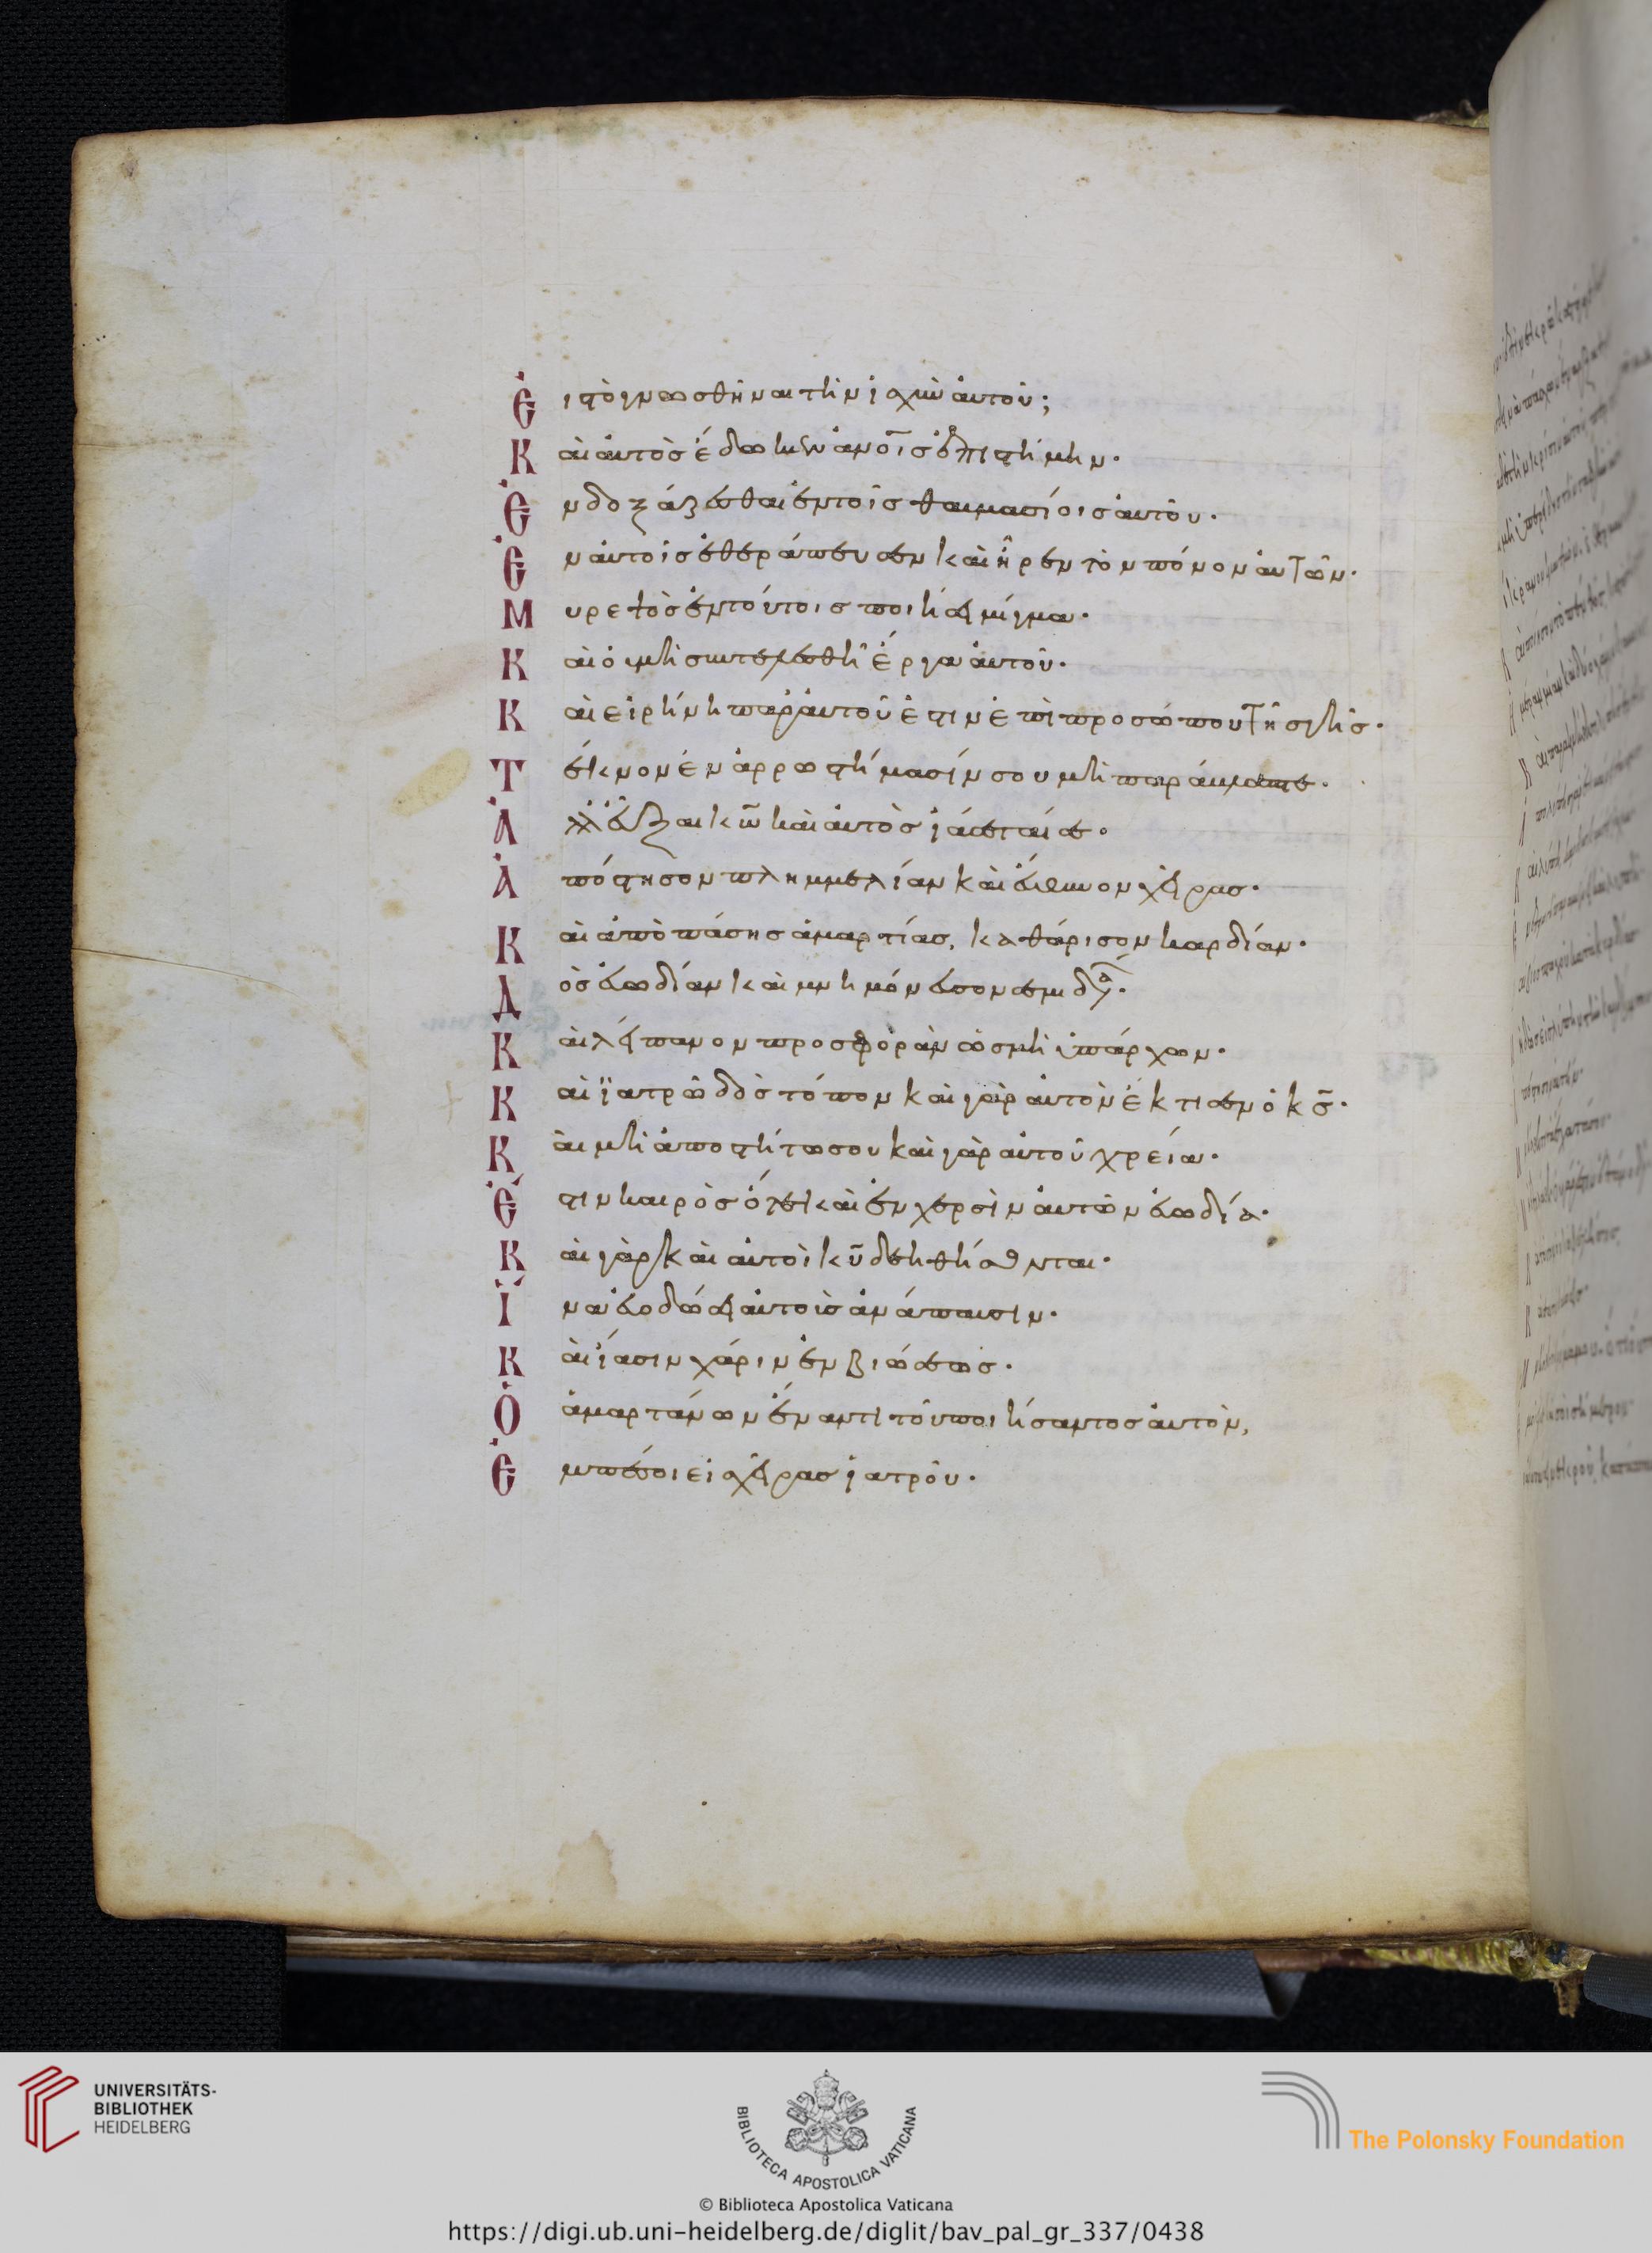 Εἰς τὸ γνωσθῆναι τὴν ἰσχὺν αὐτοῦ;
Καὶ αὐτὸς ἔδωκεν ἀνοῖς ἐπιστήμην·
Ἐνδοξάζεσθαι ἐν τοῖς θαυμασίοις αὐτοῦ·
Ἐν αὐτοῖς ἐθεράπευσεν καὶ ἦρεν τὸν πόνον αὐτῶν·
Μυρεψὸς ἐν τούτοις ποιήσει μίγμα·
Καὶ οὐ μὴ συντελεσθῆ ἔργα αὐτοῦ·
Καὶ εἰρήνη παρ' αὐτοῦ ἐστιν ἐπὶ προσώπου τῆς γῆς·
Τέκνον ἐν ἀρρωστήμασίν σου μὴ παράβλεπε·
Ἀλλ' εὖξαι κω καὶ αὐτὸς ἰάσεταί σε·
Ἀπόστησον πλημμελίαν καὶ εὔθυνον χεῖρας·
Καὶ ἀπὸ πάσης ἁμαρτίας, καθάρισον καρδίαν·
Δὸς εὐωδίαν καὶ μνημόνευσον
Καὶ λίπανον προσφορὰν ὡς μὴ ὑπάρχων·
Καὶ ἰατρῶ δὸς τόπον καὶ γὰρ αὐτὸν ἔκτισεν ὁ κς·
Καὶ μὴ ἀποστήτω σου καὶ γὰρ αὐτοῦ χρεία·
Ἔστιν καιρὸς ὅτε καὶ ἐν χερσὶν αὐτῶν εὐωδία·
Καὶ γὰρ καὶ αὐτοὶ κυ δεηθήσονται·
Ἵνα εὐοδώσει αὐτοῖς ἀνάπαυσιν·
Καὶ ἴασιν χάριν ἐμβιώσεως·
Ὁ ἁμαρτάνων ἔναντι τοῦ ποιήσαντος αὐτὸν,
Ἐμπέσοι εἰς χεῖρας ἰατροῦ·
UNIVERSITÄTS-
BIBLIOTHEK
HEIDELBERG
BIBLIOTECA APOSTOLICA VATICANA
The Polonsky Foundation
© Biblioteca Apostolica Vaticana
https://digi.ub.uni-heidelberg.de/diglit/bav_pal_gr_337/0438